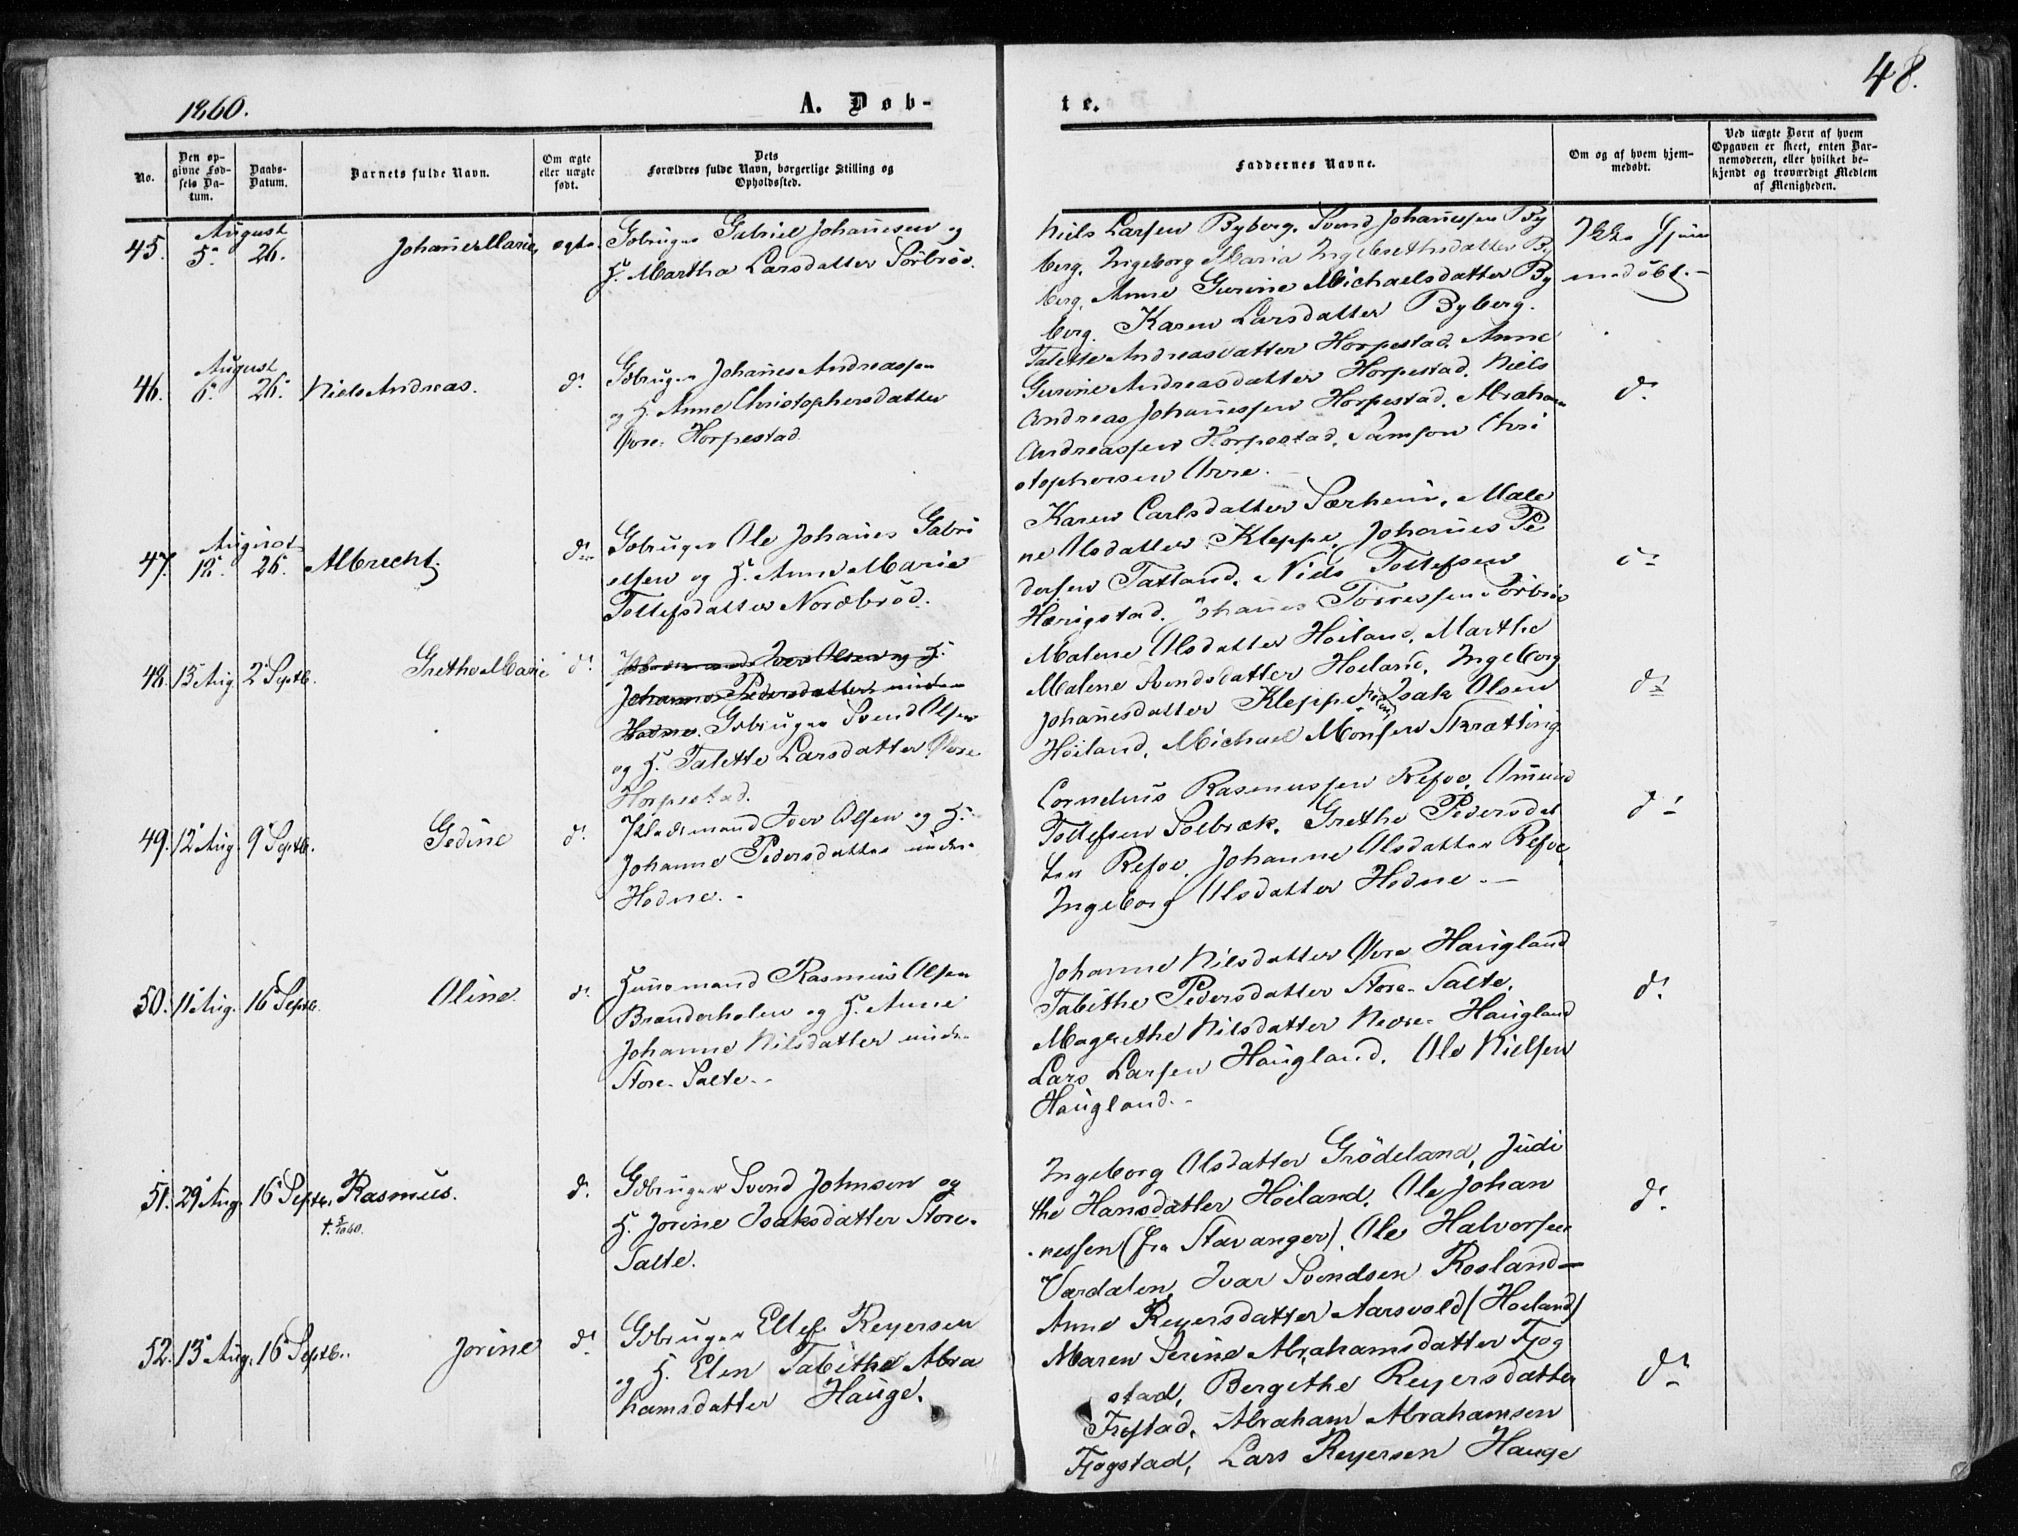 48.
1860.
A. Døb-
te.
No.
Den op-
givne Fød-
sels Da-
tum.
Daabs-
Datum.
Barnets fulde Navn.
Om ægte
eller uægte
født.
Dets
Forældres fulde Navn, borgerlige Stilling og
Opholdssted.
Faddernes Navne.
Om og af hvem hjem-
medøbt.
Ved uægte Børn af hvem
Opgaven er skeet, enten Bar-
nemoderen, eller hvilket be-
kjendt og troværdigt Medlem
af Menigheden.
45.
August
5. 26.
Johanne Marie,
ægte.
Gbruger Gabriel Johannesen og
H. Martha Larsdatter Sörbröd.
Niels Larsen Byberg. Svend Johannessen By
berg. Ingeborg Maria Ingebrethsdatter By
berg, Anne Gurine Michaelsdatter By
berg. Karen Larsdatter Byberg.
Ikke hjem
medöbt.-
46.
August
6. 26.
Niels Andreas.
do.
Gbruger Johannes Andreassen
og H. Anne Christophersdatter
Øvre Horpestad.
Talette Andreasdatter Horpestad, Anne
Gurine Andreasdatter Horpestad. Niels
Andreas Johannessen Horpestad. Abraham
Andreassen Horpestad. Samson Chri
stophersen Orre.
do.
47.
August
12. 26.
Albrecht.
do.
Gbruger Ole Johannes Gabri
elsen og H. Anne Marie
Tollefsdatter Nordbröd.
Karen Carlsdatter Særheim, Male
ne Olsdatter Kleppe, Johannes Pe
dersen Tatland. Niels Tollefsen
Hærigstad. Johannes Torressen Sörbröd
do.
48. 13 Aug. 2 Septb.
Grethe Marie
do.
Iver Olsen og H.
Johanne Pedersdatter under
Hodne. Gbruger Svend Olsen
og H. Talette Larsdatter Øvre
Horpestad.
Malene Olsdatter Höiland, Marthe
Malene Svendsdatter Höiland, Ingeborg
Johannesdatter Kleppe, Isak Olsen
Höiland, Michael Monsen Skretting
do.
49. 12 Aug. 9 Septb.
Gedine
do.
Pladsmand Iver Olsen og H.
Johanne Pedersdatter under
Hodne.
Cornelius Rasmussen Refve, Omund
Tollefsen Solbræk. Grethe Pedersdat
ter Refve. Johanne Olsdatter Refve,
Ingeborg Olsdatter Hodne.
do.
50. 11 Aug. 16 Septb.
Oline.
do.
Huusmand Rasmus Olsen
Brænderholen og H. Anne
Johanne Nilsdatter under
Store Salte.
Johanne Nilsdatter Øvre Haugland
Tabithe Pedersdatter Store Salte.
Magrethe Nilsdatter Nedre Haugland
Lars Larsen Haugland. Ole Nielsen
Haugland.
do.
51. 29 Aug. 16 Septb. Rasmus.
do.
Gbruger Svend Johnsen og
H. Jorine Isaksdatter Store-
Salte.
Ingeborg Olsdatter Grödeland, Judi
the Hansdatter Höiland. Ole Johan
nessen (fra Stavanger). Ole Halvorsen
Værdalen, Ivar Svendsen Rosland
do.
52. 13 Aug. 16 Septb.
Jorine
do.
Gbruger Ellef Reyersen
og H. Elen Tabithe Abra
hamsdatter Hauge.
Anne Reyersdatter Aarsvold (Höiland)
Maren Serine Abrahamsdatter Fjog
stad, Bergithe Reyersdatter
Frestad. Abraham Abrahamsen
Fjogstad, Lars Reyersen Hauge
do.